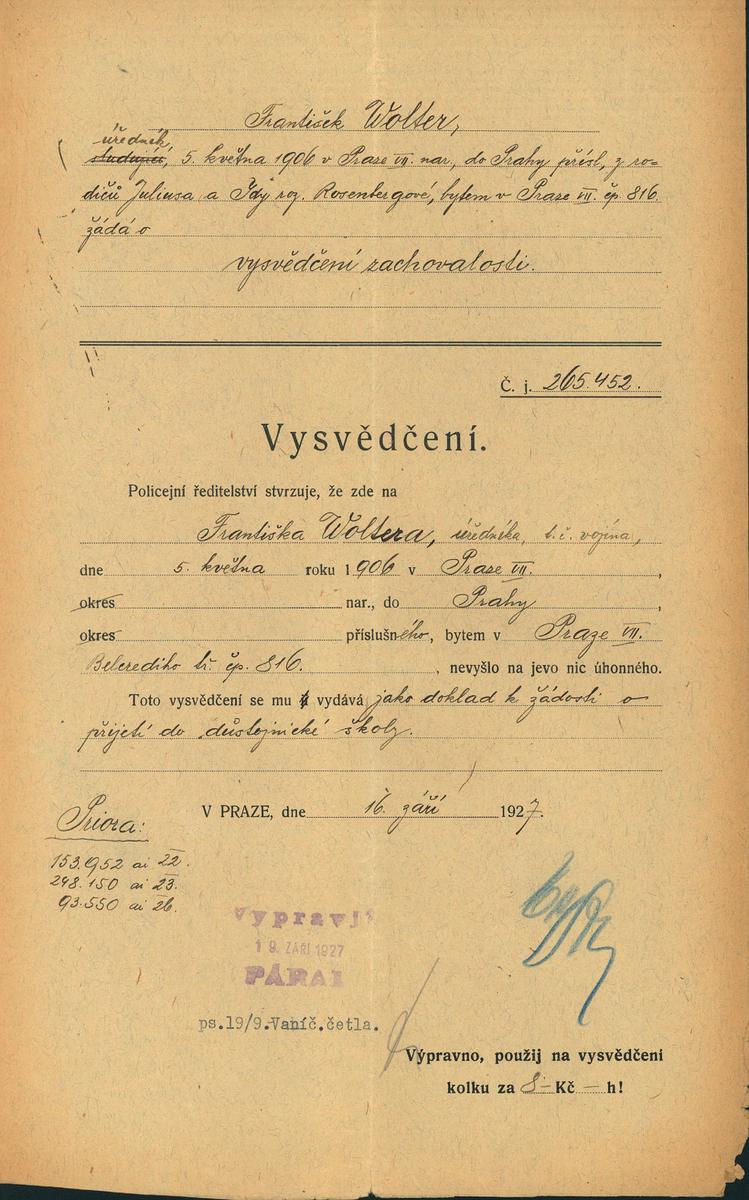 František Wolter,
úředník,
studující, 5. května 1906 v Praze VII. nar., do Prahy přísl., z ro-
dičů Juliusa a Idy roz. Rosenbergové, bytem v Praze VII. čp. 816.
žádá o
vysvědčení zachovalosti.
Č. j. 265.452.
Vysvědčení.
Policejní ředitelství stvrzuje, že zde na
Františka Woltera, úředníka, t. č. vojína,
dne 5. května roku 1906 v Praze VII.,
okres nar., do Prahy,
okres příslušného, bytem v Praze VII.
Belcrediho tř. čp. 816., nevyšlo na jevo nic úhonného.
Toto vysvědčení se mu vydává jako doklad k žádosti o
přijetí do důstojnické školy.
V PRAZE, dne 16. září 1927.
Priora:
153.952 ai 22.
248.150 ai 23.
93.550 ai 26.
Vypravil
19. ZÁŘÍ 1927
ps.19/9.Vaníč.četla.
Výpravno, použij na vysvědčení
kolku za 8 Kč — h!